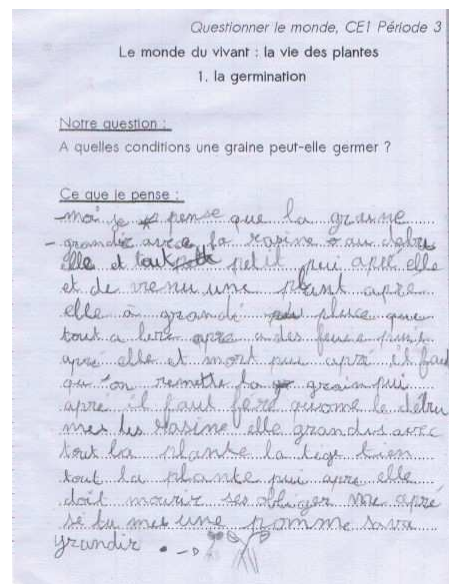 Questionner le monde, CE1 Période 3
Le monde du vivant : la vie des plantes
1. la germination
Notre question :
A quelles conditions une graine peut-elle germer ?
Ce que je pense :
-moi je pense que la graine
- grandir avec la rasine au débu
elle et tout petit pui apré elle
et de venu une plant apre
elle à grandi plus que
tout a apre a des puis
apré elle et mort pui apré il faut
qu'on remette la grain pui
apré il faut fère comme le débu
mes les rasine elle grandis avec
tout la plante la tige bien
tout la plante pui apre elle
doit mourir ses obliger me apré
sé tu mes une pomme sava
grandir